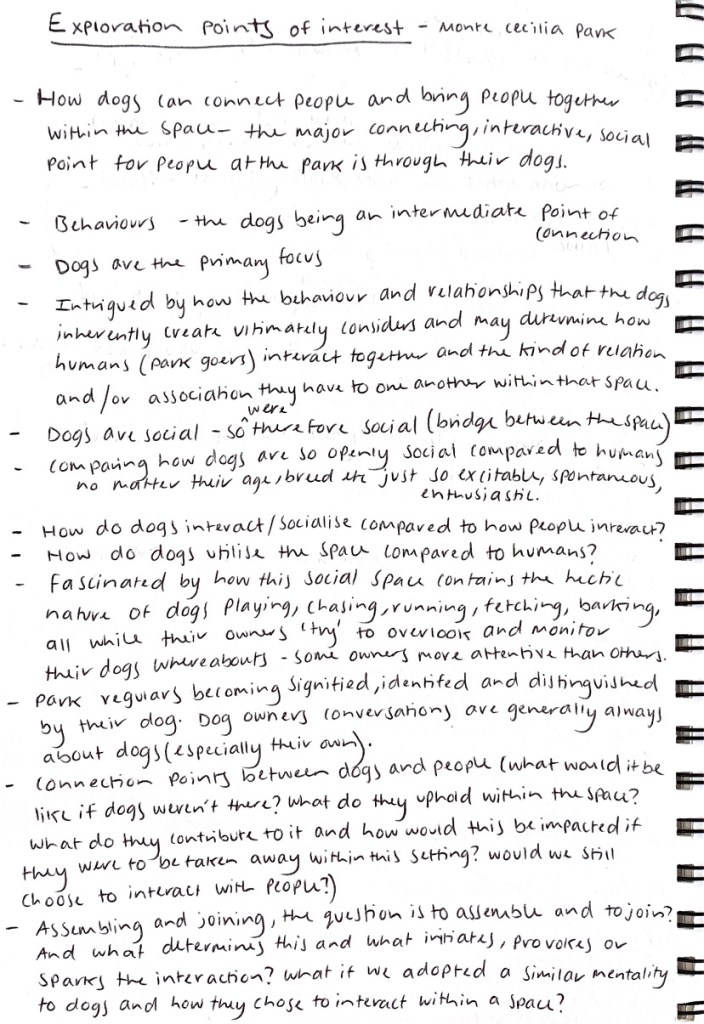 Exploration points of interest - Monte Cecilia Park
- How dogs can connect people and bring people together
within the space - the major connecting, interactive, social
point for people at the park is through their dogs.
- Behaviours - the dogs being an intermediate point of
connection
- Dogs are the primary focus
- Intrigued by how the behaviour and relationships that the dogs
inherently create ultimately considers and may determine how
humans (park goers) interact together and the kind of relation
and/or association they have to one another within that space.
were
- Dogs are social - so ^ therefore social (bridge between the space)
- comparing how dogs are so openly social compared to humans
no matter their age, breed etc just so excitable, spontaneous,
enthusiastic.
- How do dogs interact/socialise compared to how people interact?
- How do dogs utilise the space compared to humans?
- Fascinated by how this social space contains the hectic
nature of dogs playing, chasing, running, fetching, barking,
all while their owners 'try' to overlook and monitor
their dogs whereabouts - some owners more attentive than others.
- park regulars becoming signified, identifed and distinguished
by their dog. Dog owners conversations are generally always
about dogs (especially their own).
- connection points between dogs and people (what would it be
like if dogs weren't there? What do they uphold within the space?
what do they contribute to it and how would this be impacted if
they were to be taken away within this setting? would we still
choose to interact with people?)
- Assembling and joining, the question is to assemble and to join?
And what determines this and what initiates, provokes or
sparks the interaction? what if we adopted a similar mentality
to dogs and how they chose to interact within a space?